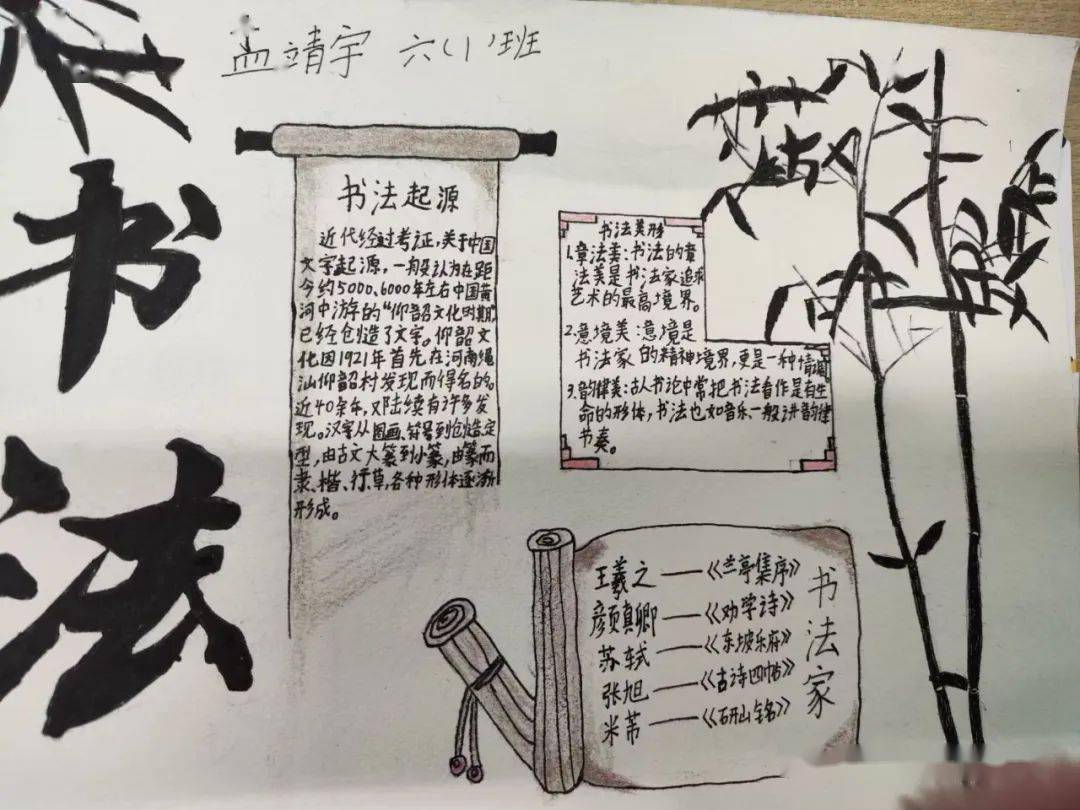 孟靖宇 六(1)班
书法
书法起源
近代经过考证,关于中国
文字起源,一般认为在距
今约5000、6000年左右中国黄
河中游的“仰韶文化时期”
已经创造了文字。仰韶文
化因1921年首先在河南绳
汕仰韶村发现而得名的。
近40余年,又陆续有许多发
现。汉字从图画、符号到创造定
型,由古文大篆到小篆,由篆而
隶、楷、行、草,各种形体逐渐
形成。
书法美形
1.章法美:书法的章
法美是书法家追求
艺术的最高境界。
2.意境美:意境是
书法家的精神境界,更是一种情调。
3.韵律美:古人书论中常把书法看作是有生
命的形体,书法也如音乐一般讲音韵律
节奏。
书法家
王羲之——《兰亭集序》
颜真卿——《劝学诗》
苏轼——《东坡乐府》
张旭——《古诗四帖》
米芾——《研山铭》